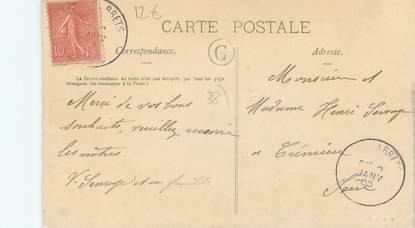 12€
BRETS
10
CARTE POSTALE
Correspondance.
C
Adresse.
La Correspondance au verso n'est pas acceptée par tous les pays
étrangers. (Se renseigner à la Poste)
38
Merci de vos bons
souhaits, veuillez recevoir
les nôtres
et sa famille
Monsieur et
Madame Henri
a Crémieu
Isère
BRETS
JANV
05